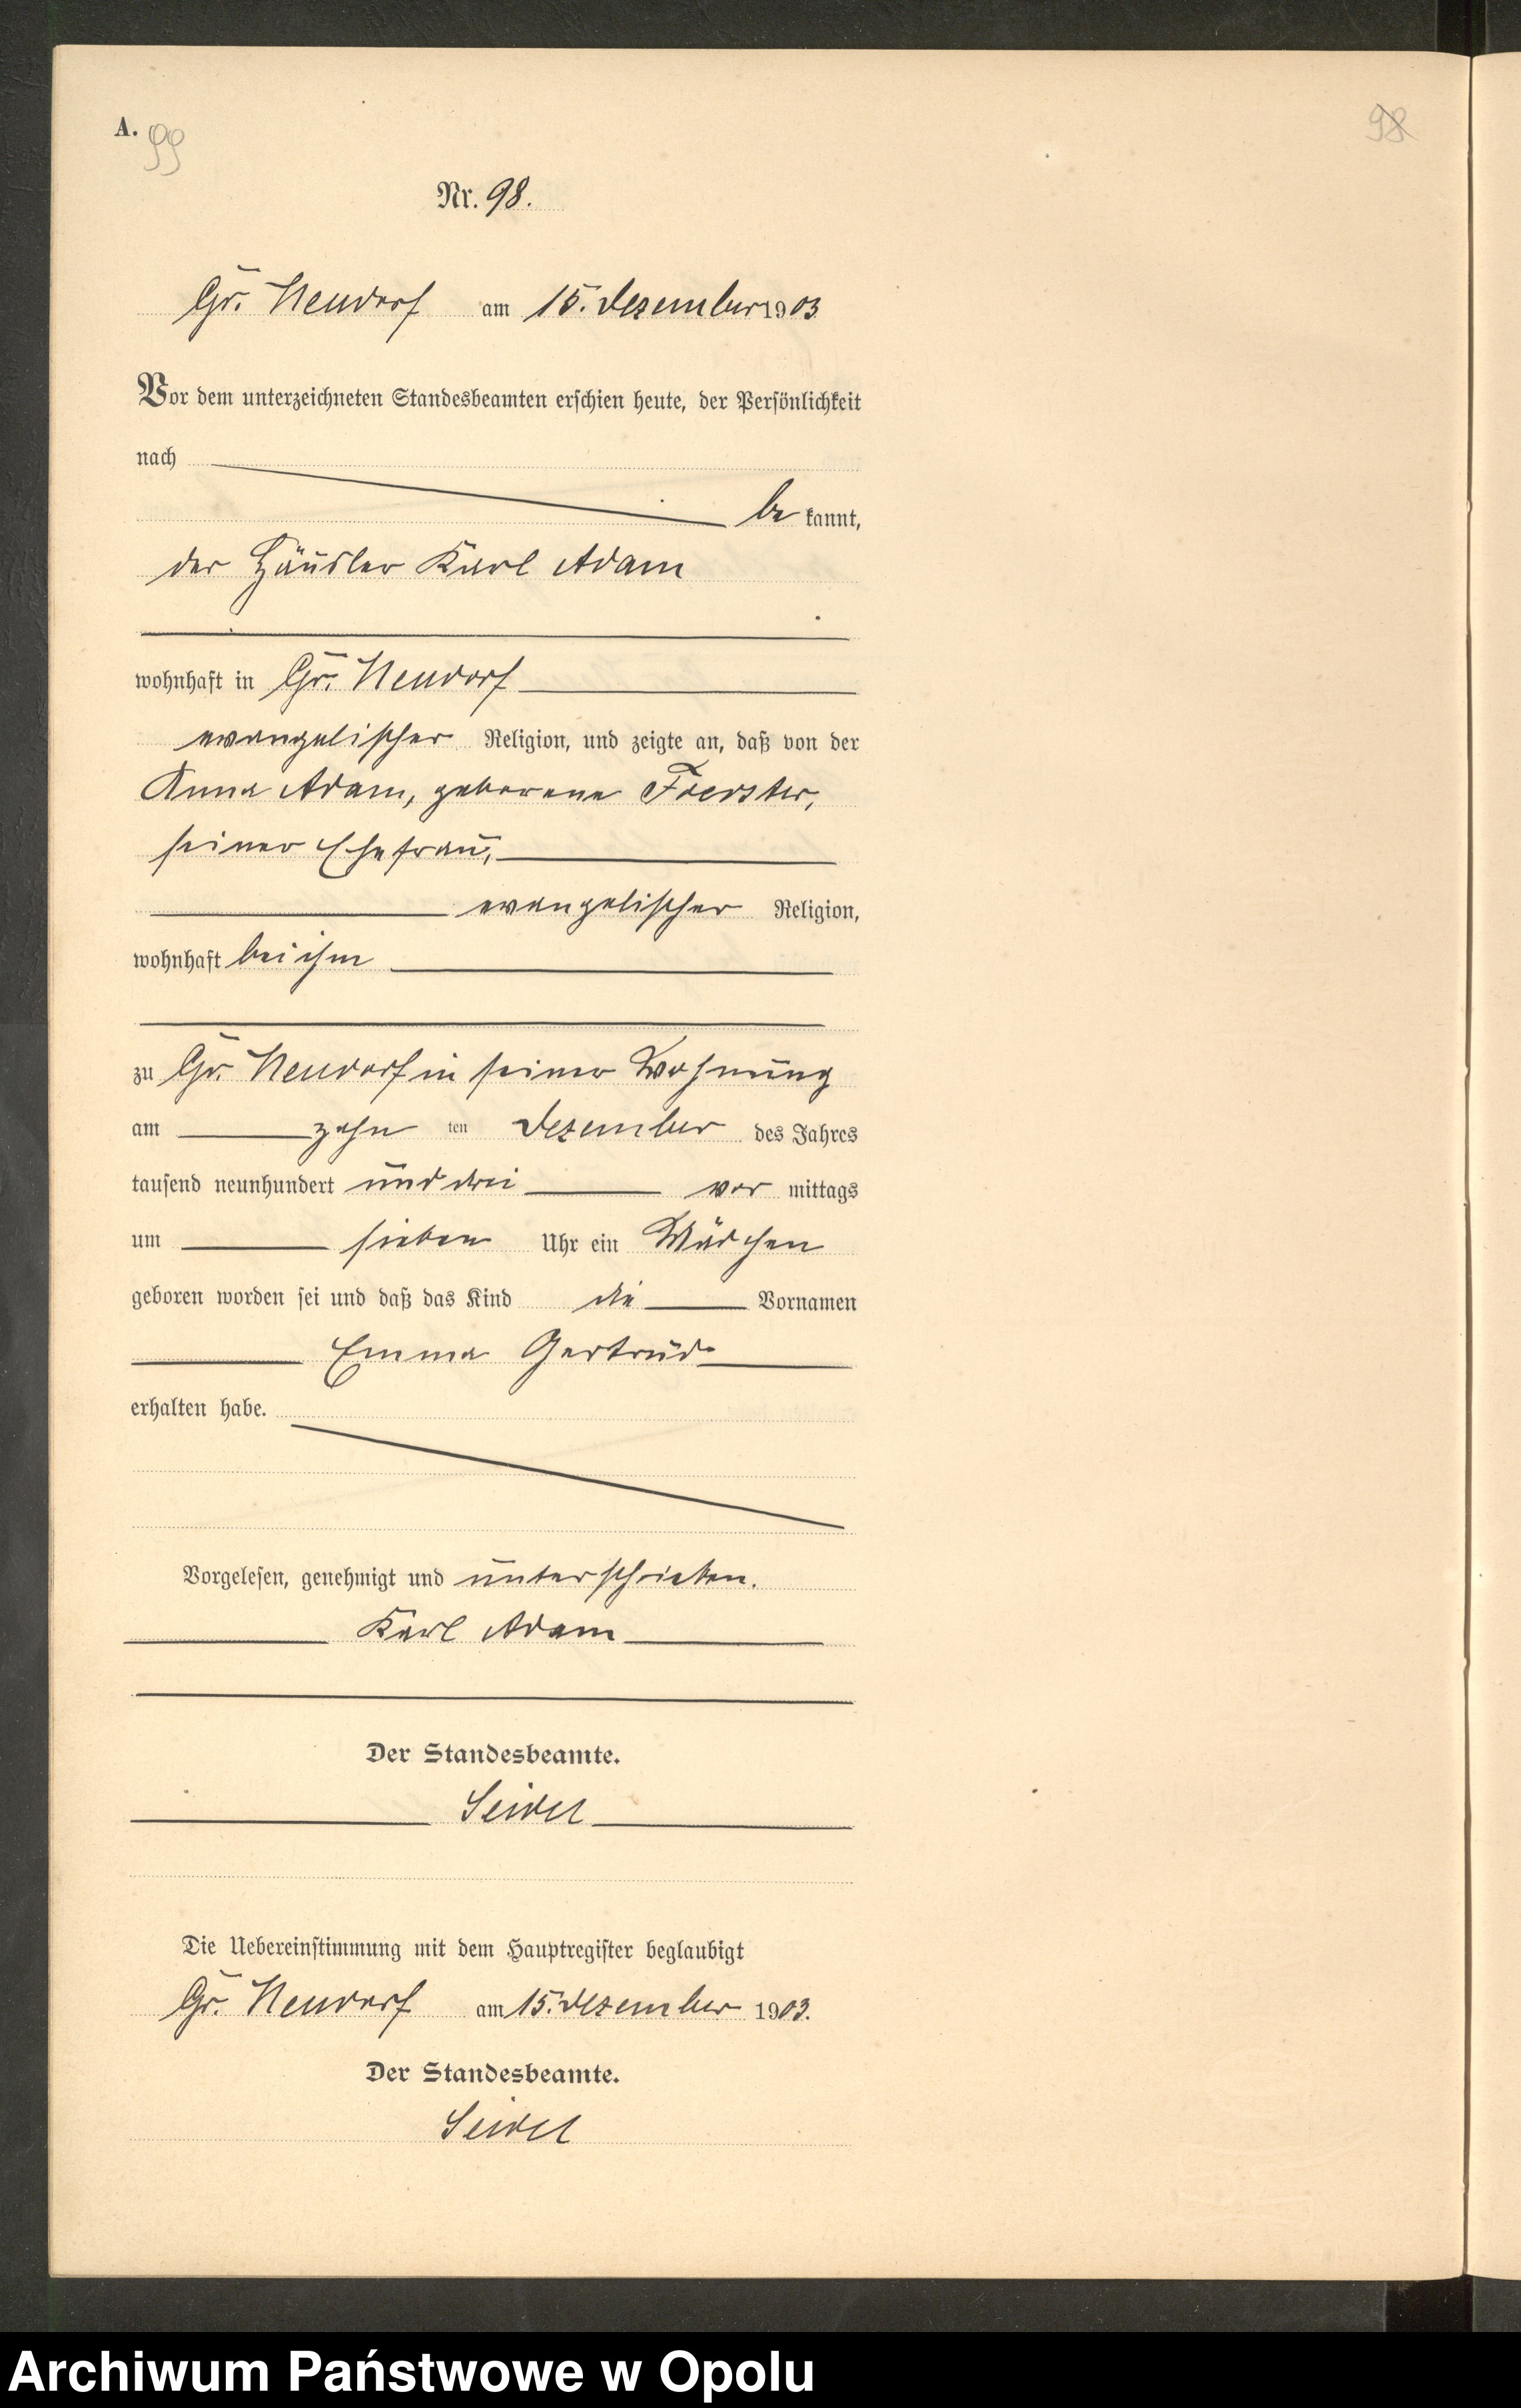 A.
99
98
Nr. 98.
Gr. Neudorf am 15. Dezember 1903
Vor dem unterzeichneten Standesbeamten erschien heute, der Persönlichkeit
nach
be kannt,
der Häusler Karl Adam
wohnhaft in Gr. Neudorf
evangelischer Religion, und zeigte an, daß von der
Anna Adam, geborene Foerster,
seiner Ehefrau,
evangelischer Religion,
wohnhaft bei ihm
zu Gr. Neudorf in seiner Wohnung
am zehn ten Dezember des Jahres
tausend neunhundert und drei vor mittags
um sieben Uhr ein Mädchen
geboren worden sei und daß das Kind die Vornamen
Emma Gertrud
erhalten habe.
Vorgelesen, genehmigt und unterschrieben.
Karl Adam
Der Standesbeamte.
Seidel
Die Uebereinstimmung mit dem Hauptregister beglaubigt
Gr. Neudorf am 15. Dezember 1903.
Der Standesbeamte.
Seidel
Archiwum Państwowe w Opolu